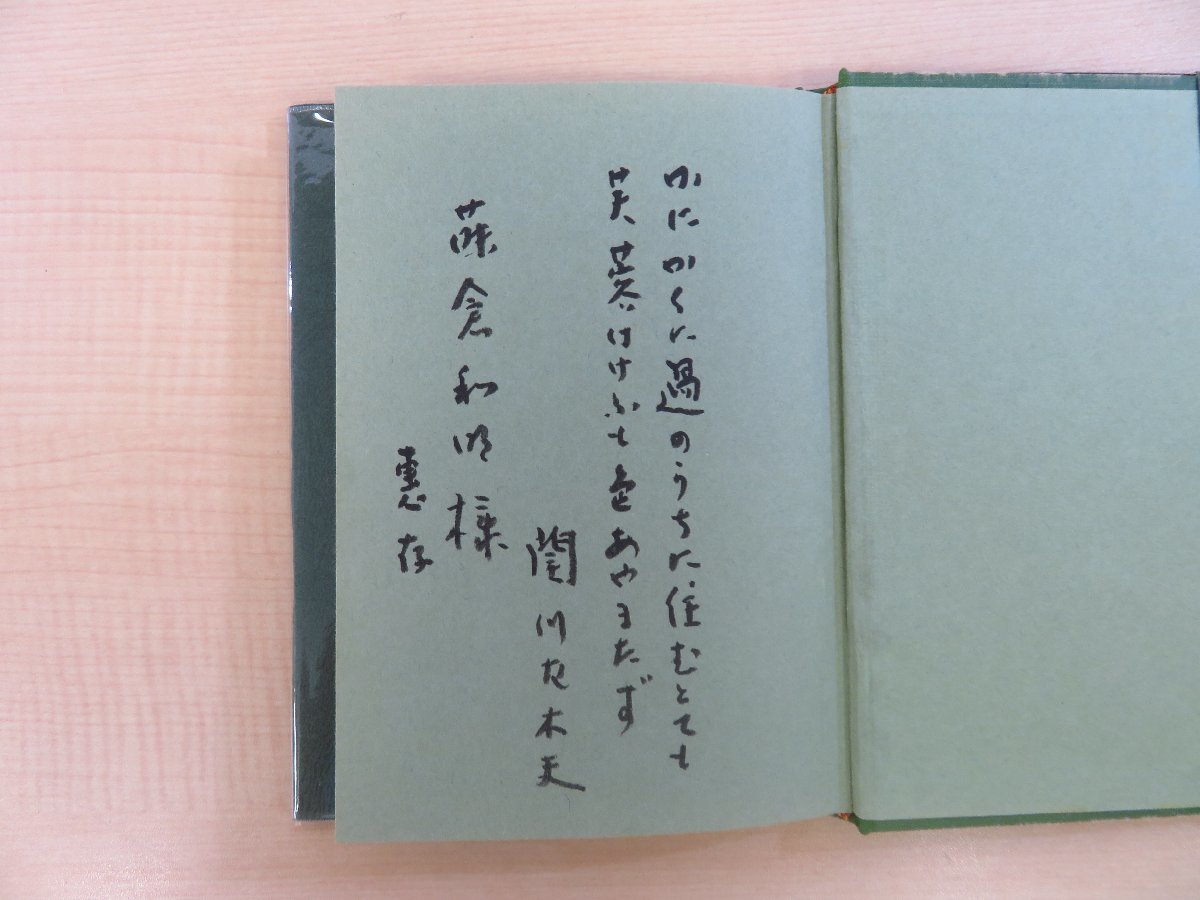 かにかくに過のうちに住むとても
芙蓉はけふも色あやまたず
関川左木夫
藤倉和明様
恵存